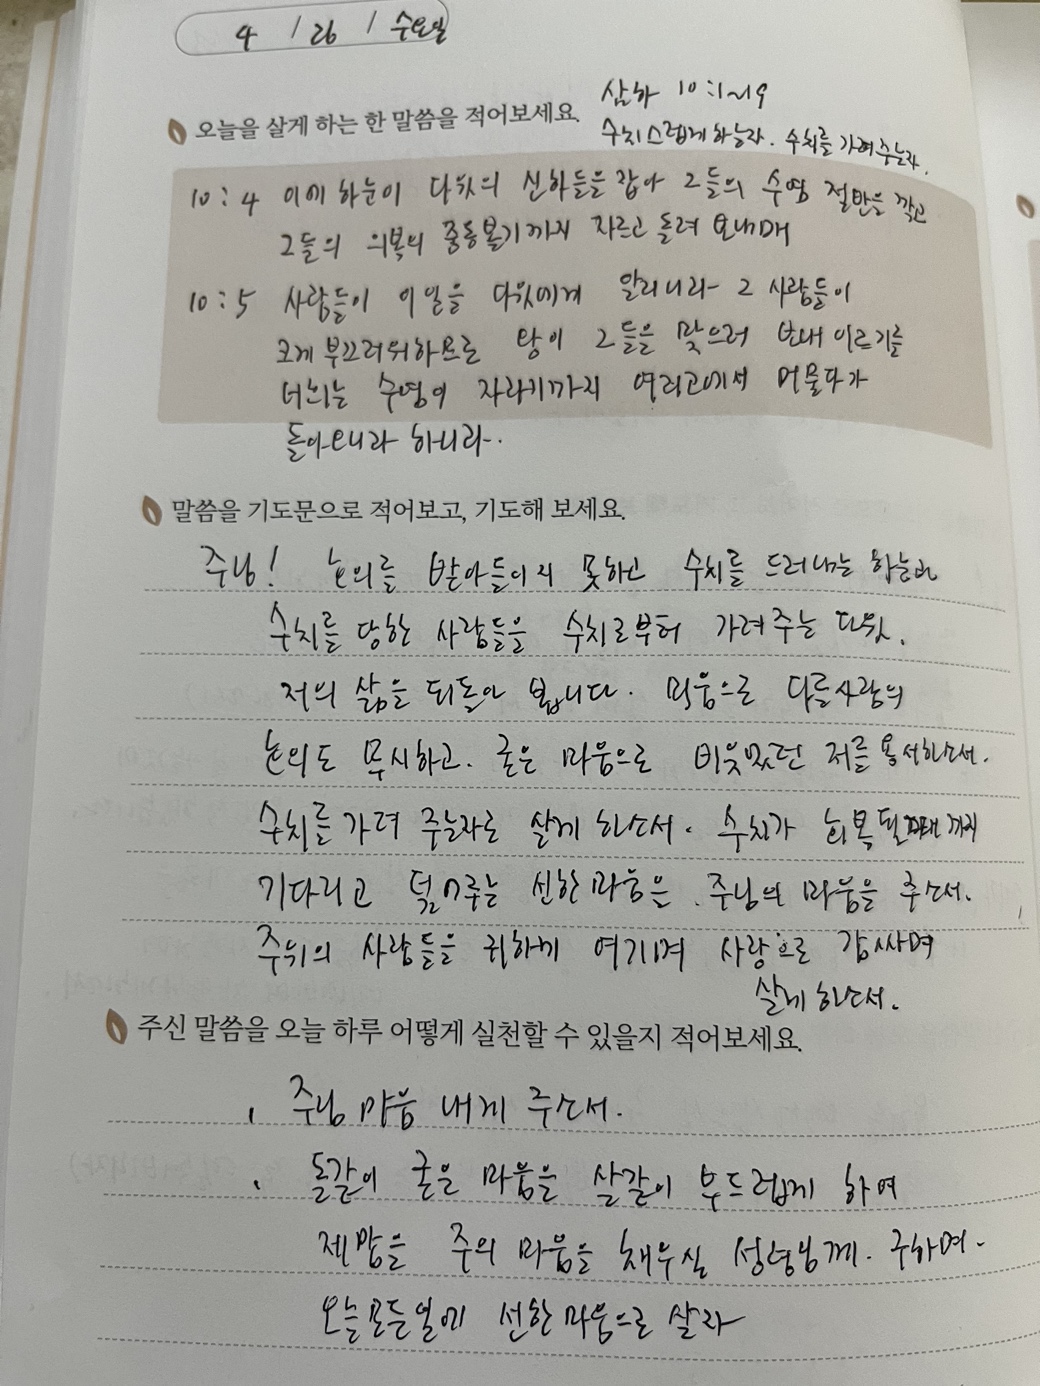 4 / 26 / 수요일
삼하 10:1~19
오늘을 살게 하는 한 말씀을 적어보세요.
수치스럽게 하는자. 수치를 가려주는자.
10:4 이에 하눈이 다윗의 신하들을 잡아 그들의 수염 절반을 깎고
그들의 의복의 중동볼기까지 자르고 돌려 보내매
10:5 사람들이 이 일을 다윗에게 알리니라 그 사람들이
크게 부끄러워하므로 왕이 그들을 맞으러 보내 이르기를
너희는 수염이 자라기까지 여리고에서 머물다가
돌아오니라 하니라.
말씀을 기도문으로 적어보고, 기도해 보세요.
주님! 논의를 받아들이지 못하고 수치를 드러내는 하눈과
수치를 당한 사람들을 수치로부터 가려주는 다윗.
저의 삶을 되돌아 봅니다. 미움으로 다른사람의
논의도 무시하고. 굳은 마음으로 비웃었던 저를 용서하소서.
수치를 가려 주는자로 살게 하소서. 수치가 회복될때 까지
기다리고 덮어주는 선한마음은 . 주님의 마음을 주소서.
주위의 사람들을 귀하게 여기며 사랑으로 감싸며
살게 하소서.
주신 말씀을 오늘 하루 어떻게 실천할 수 있을지 적어보세요.
. 주님 마음 내게 주소서.
. 돌같이 굳은 마음을 살같이 부드럽게 하여
제 맘을 주의 마음을 채우실 성령님께. 구하며.
오늘 모든일에 선한마음으로 살라